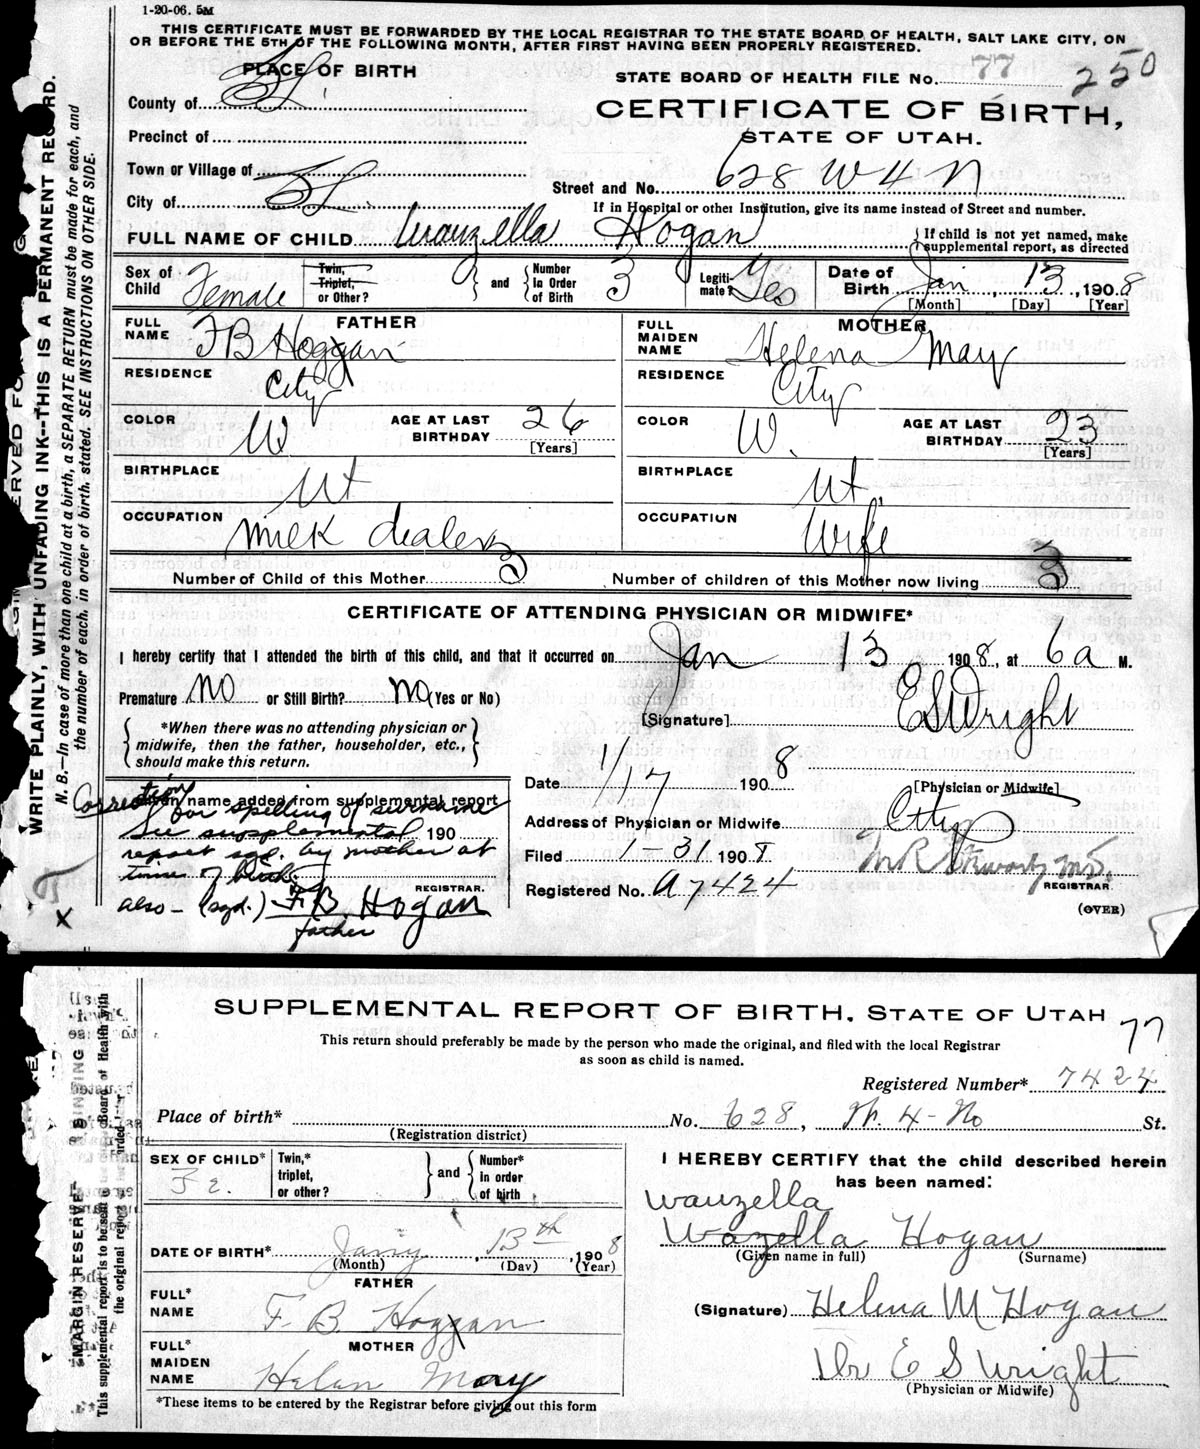 1-20-06. 5M
THIS CERTIFICATE MUST BE FORWARDED BY THE LOCAL REGISTRAR TO THE STATE BOARD OF HEALTH, SALT LAKE CITY, ON
OR BEFORE THE 5TH OF THE FOLLOWING MONTH, AFTER FIRST HAVING BEEN PROPERLY REGISTERED.
PLACE OF BIRTH
STATE BOARD OF HEALTH FILE No. 77 250
County of SL.
CERTIFICATE OF BIRTH,
STATE OF UTAH.
Precinct of
Town or Village of
Street and No. 628 W 4 N
City of SL.
If in Hospital or other Institution, give its name instead of Street and number.
FULL NAME OF CHILD Wauzella Hogan { If child is not yet named, make supplemental report, as directed
Sex of Child Female Twin, Triplet, or Other? and Number In Order of Birth 3 Legiti- mate? Yes Date of Birth Jan, 13, 1908
[Month] [Day] [Year]
FATHER MOTHER
FULL NAME F B Hoggan FULL MAIDEN NAME Helena May
RESIDENCE City RESIDENCE City
COLOR W AGE AT LAST BIRTHDAY 26 [Years] COLOR W. AGE AT LAST BIRTHDAY 23 [Years]
BIRTHPLACE Ut BIRTHPLACE Ut.
OCCUPATION Milk dealer OCCUPATION Wife
Number of Child of this Mother 3 Number of children of this Mother now living 3
CERTIFICATE OF ATTENDING PHYSICIAN OR MIDWIFE*
I hereby certify that I attended the birth of this child, and that it occurred on Jan 13 1908, at 6a M.
Premature NO or Still Birth? NO (Yes or No)
[Signature] E S Wright
*When there was no attending physician or
midwife, then the father, householder, etc.,
should make this return.
Date 1/17 1908
[Physician or Midwife]
Address of Physician or Midwife City
Filed 1-31 1908
REGISTRAR.
Registered No. A7424
(OVER)
Correction
Given name added from supplemental report
for spelling of surname
See supplemental 190
report sgd. by mother at
time of birth.
REGISTRAR.
also - (sgd.) F. B. Hogan
father
X
WRITE PLAINLY, WITH UNFADING INK--THIS IS A PERMANENT RECORD.
N. B.—In case of more than one child at a birth, a SEPARATE RETURN must be made for each, and
the number of each, in order of birth, stated. SEE INSTRUCTIONS ON OTHER SIDE.
SUPPLEMENTAL REPORT OF BIRTH, STATE OF UTAH
77
This return should preferably be made by the person who made the original, and filed with the local Registrar
as soon as child is named.
Registered Number* 7424
Place of birth* No. 628, W. 4-No St.
(Registration district)
SEX OF CHILD* Fe. Twin,* triplet, or other? and Number* in order of birth
I HEREBY CERTIFY that the child described herein
has been named:
Wauzella
Wazella Hogan
(Given name in full) (Surname)
DATE OF BIRTH* Jany, 13th, 1908
(Month) (Day) (Year)
FATHER
FULL* NAME F. B. Hoggan
(Signature) Helena M Hogan
MOTHER
FULL* MAIDEN NAME Helen May
Dr E S Wright
(Physician or Midwife)
*These items to be entered by the Registrar before giving out this form
MARGIN RESERVE BINDING
This supplemental report is to be sent Board of Health with
the original report